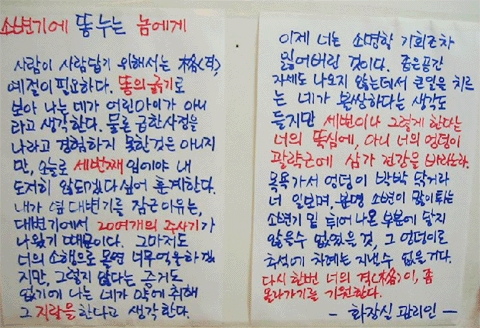 소변기에 똥누는 놈에게
사람이 사람답기 위해서는 格(격),
예절이 필요하다. 똥의 굵기로
보아 나는 네가 어린아이가 아니
라고 생각한다. 물론 급한사정을
나라고 경험하지 못한것은 아니지
만, 오늘로 세번째임에야 내
도저히 않되겠다 싶어 훈계한다.
내가 옆 대변기를 잠근이유는,
대변기에서 20여개의 주사기가
나왔기 때문이다. 그마저도
너의 소행으로 몰면 너무억울하겠
지만, 그렇지 않다는 증거도
없기에 나는 네가 약에 취해
그 지랄을한다고 생각한다.
이제 너는 소명할 기회조차
잃어버린 것이다. 좁은공간
자세도 나오지 않는데서 큰일을 치르
는 네가 불쌍하다는 생각도
들지만 세번이나 그렇게 한다는
너의 뚝심에, 아니 너의 엉덩이
괄약근에 삼가 건강을 바라노라.
목욕가서 엉덩이 박박 닦거라
너 일보며, 분명 소변이 많이튀는
소변기 밑 튀어나온 부분에 닿지
않을수 없었을 것, 그 엉덩이로
추석에 차례는 지낼수 없을거다.
다시 한번 너의 격(格)이, 좀
올라가기를 기원한다.
- 화장실 관리인 -